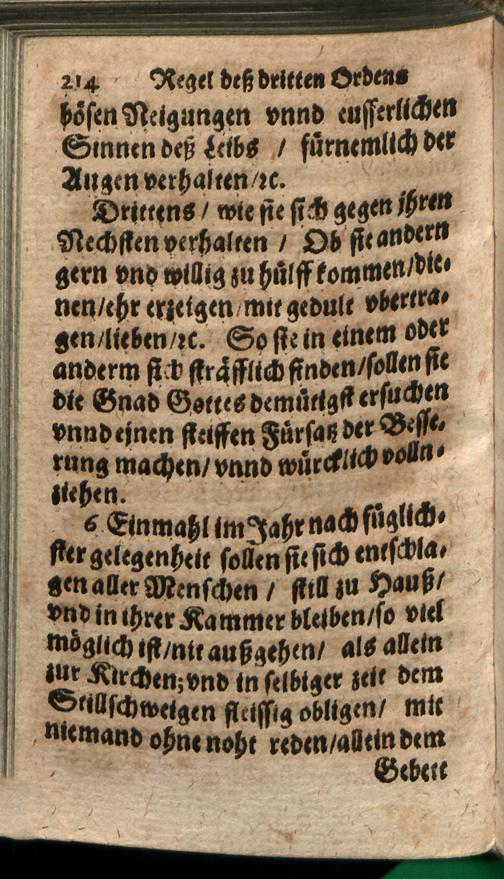 214 Regel deß dritten Ordens
bösen Neigungen vnnd eusserlichen
Sinnen deß Leibs / fürnemlich der
Augen verhalten/ꝛc.
Drittens / wie sie sich gegen jhren
Nechsten verhalten / Ob sie andern
gern vnd willig zu hülff kommen/die-
nen/ehr erzeigen/mit gedult vbertra-
gen/lieben/ꝛc. So sie in einem oder
anderm sich sträfflich finden/sollen sie
die Gnad Gottes demütigst ersuchen
vnnd einen steiffen Fürsatz der Besse-
rung machen/ vnnd würcklich volln-
ziehen.
6 Einmahl im Jahr nach füglich-
ster gelegenheit sollen sie sich entschla-
gen aller Menschen / still zu Hauß/
vnd in ihrer Kammer bleiben/so viel
möglich ist/nit außgehen/ als allein
zur Kirchen; vnd in selbiger zeit dem
Stillschweigen fleissig obligen/ mit
niemand ohne noht reden/allein dem
Gebett